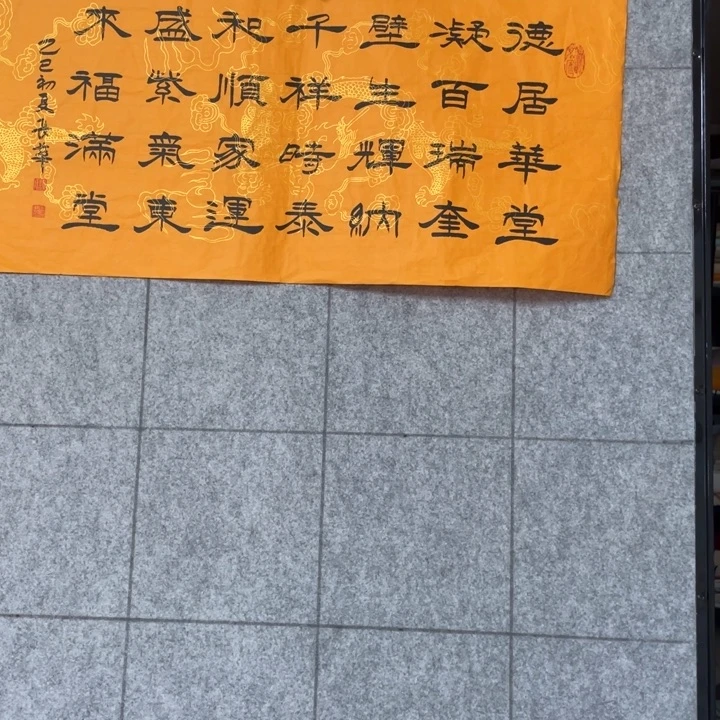 德居華堂
凝百瑞奎
壁生輝納
千祥時泰
和順家運
盛紫氣東
來福滿堂
乙巳初夏長華